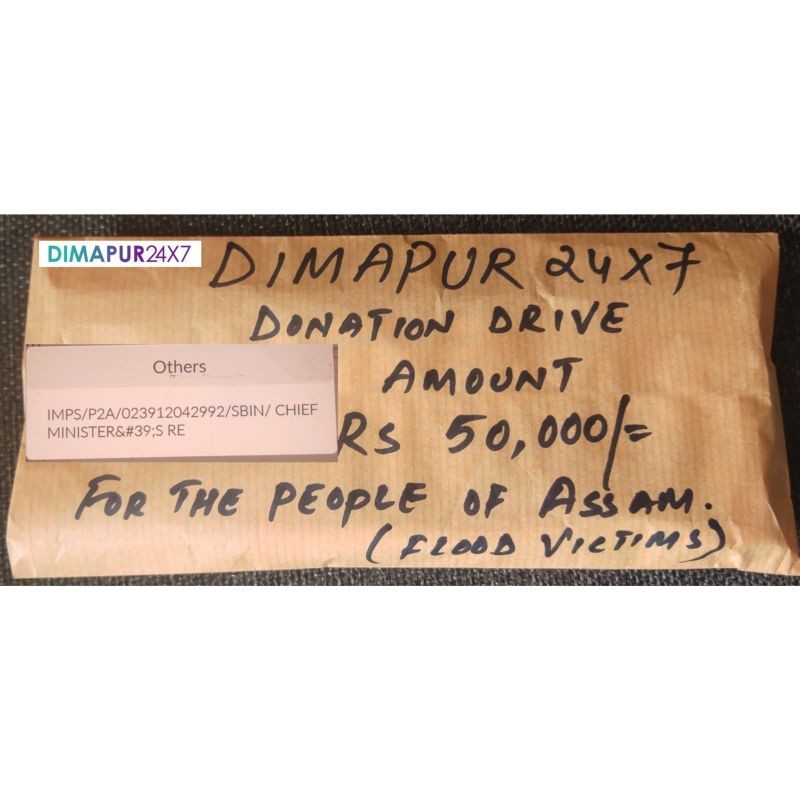 DIMAPUR24X7
DIMAPUR 24X7
DONATION DRIVE
AMOUNT
Rs 50,000/=
FOR THE PEOPLE OF ASSAM.
(FLOOD VICTIMS)
Others
IMPS/P2A/023912042992/SBIN/ CHIEF
MINISTER&#39;S RE